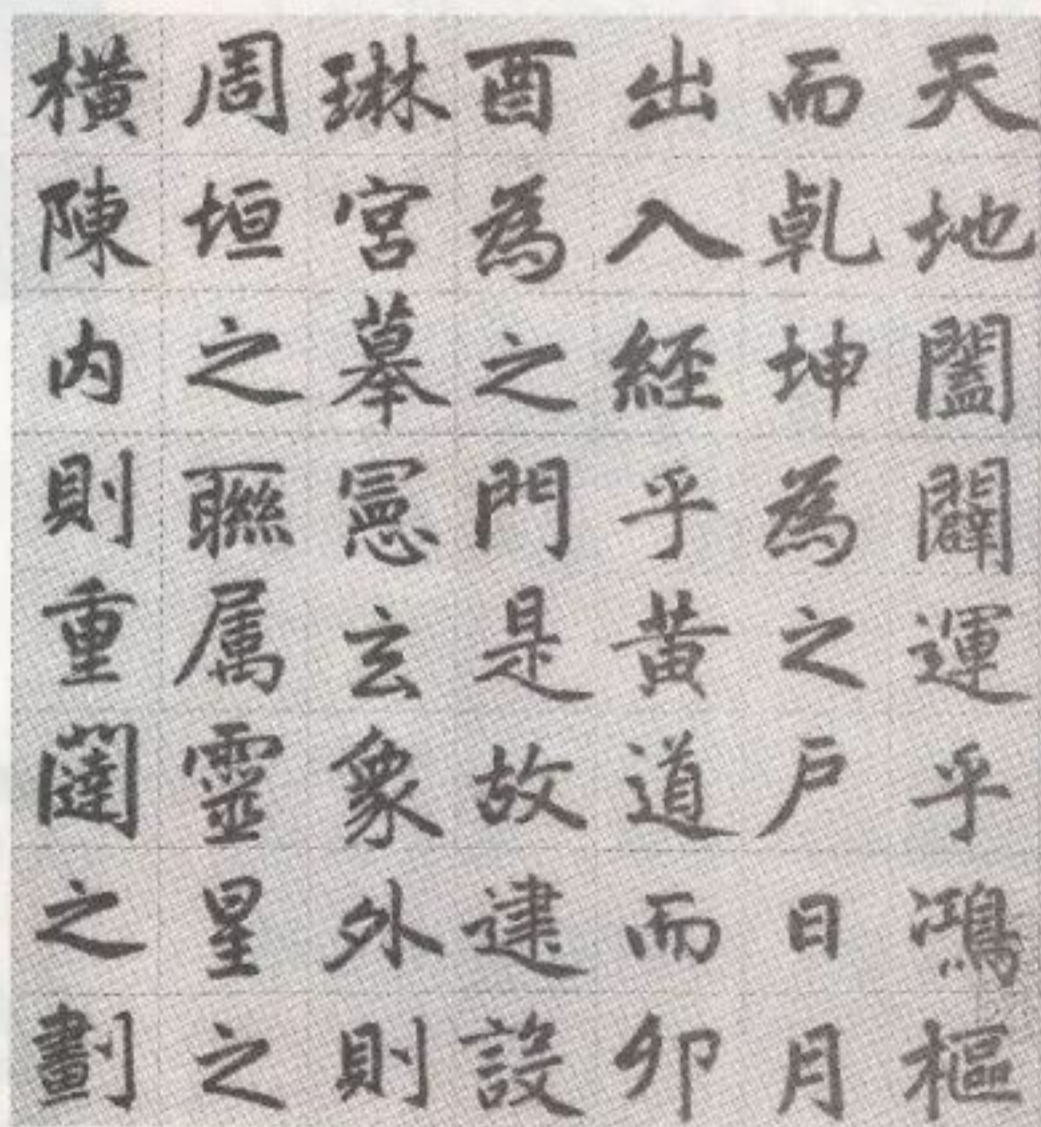 天地闔闢運乎鴻樞
而乹坤為之户日月
出入經乎黄道而卯
酉為之門是故建設
琳宮摹憲玄象外則
周垣之聮属靈星之
橫陳内則重闥之劃